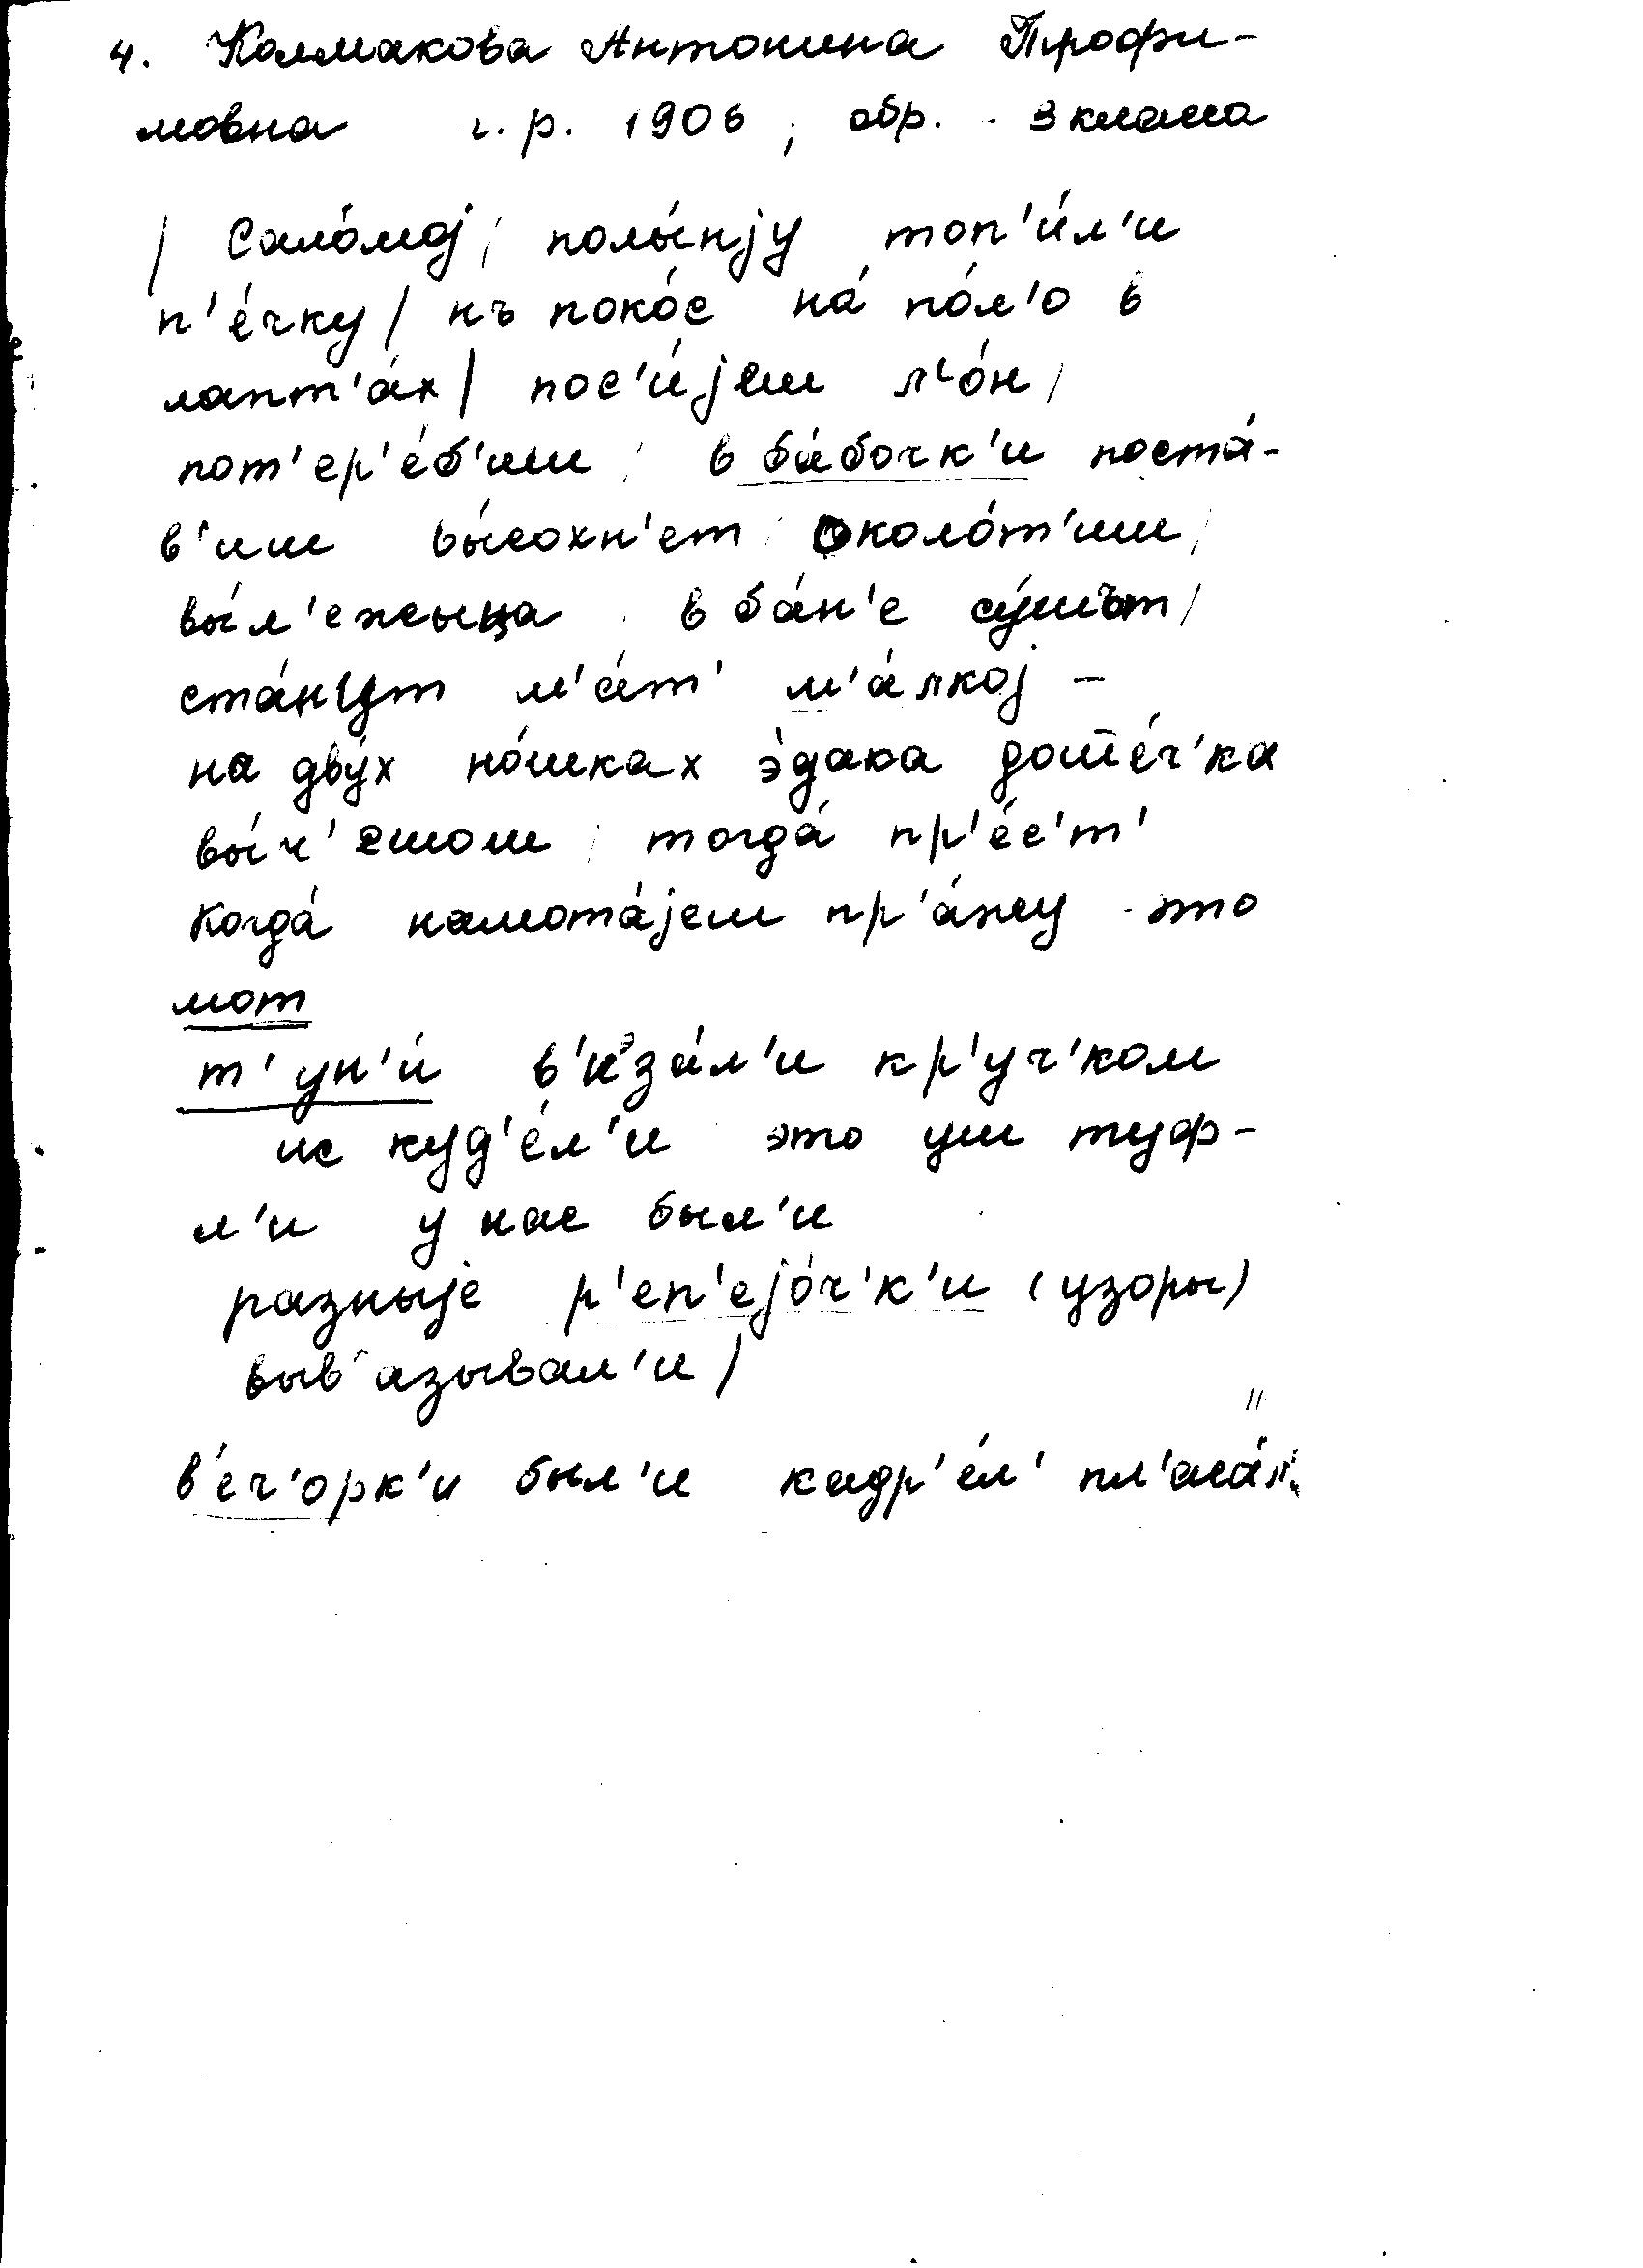 4. Колмакова Антонина Трофи-
мовна г.р. 1906, обр. - 3 класса
| Сало́мој| полы́нју топ'и́л'и
п'е́чку| нъ поко́с на́ по́л'о в
лапт'а́х| пос'и́јем л'о́н|
пот'ер'е́б'им| в ба́бочк'и поста́-
в'им вы́сохн'ет| около́т'им|
вы́л'ежыца в ба́н'е су́шът|
ста́нут м'а́т' м'а́лкој -
на дву́х но́шках э́дака доше́ч'ка
вы́ч'ешом| тогда́ пр'е́с'т'
когда́ намота́јем пр'а́жу - это
мот
т'ун'и́ в'иэза́л'и кр'уч'ком
ис куд'е́л'и это уш туф-
л'и у нас был'и
разныје р'еп'ејо́ч'к'и (узоры)
выв'азывал'и|
в'е́ч'орк'и был'и кадр'е́л' пл'аса́л'и